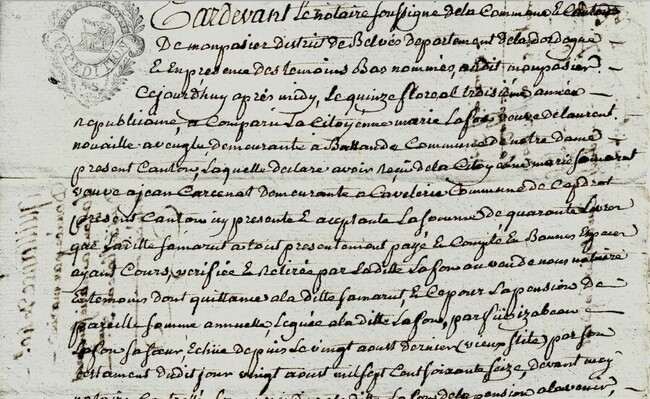 EXPEDITION
Pardevant Le notaire soussigné de la Commune & Canton
De monpasier district de Belvès departement de la dordogne
& En presence des temoins Bas nommés, audit monpasier
Cejourdhuy après midy, le quinze floreal troisieme année
republicaine, a Comparu La Citoyenne marie Lafon veuve de laurent
nouaille aveugle demeurante a Commune de notre dame
present Canton, Laquelle declare avoir reçu de la Citoyenne marie samarut
veuve a jean Carcenat demeurante a Cavelerie Commune de Capdrot
present Canton icy presente & aceptante La somme de quarante Livres
que Ladite samarut a tout presentement payé & Compté En Bonnes Especes
ayant Cours, verifiée & Retirée par Ladite Lafon au veu de nous notaire
& temoins dont quittance a la ditte samarut, & Ce pour La pension de
pareille somme annuelle, Leguée a la ditte Lafon, par feu izabeau
Lafon sa sœur Echue depuis Le vingt aoust dernier (vieux stile) par son
testament dudit jour vingt aoust mil sept Cent soixante seize, devant moy
notaire de la pension a Lavenir,